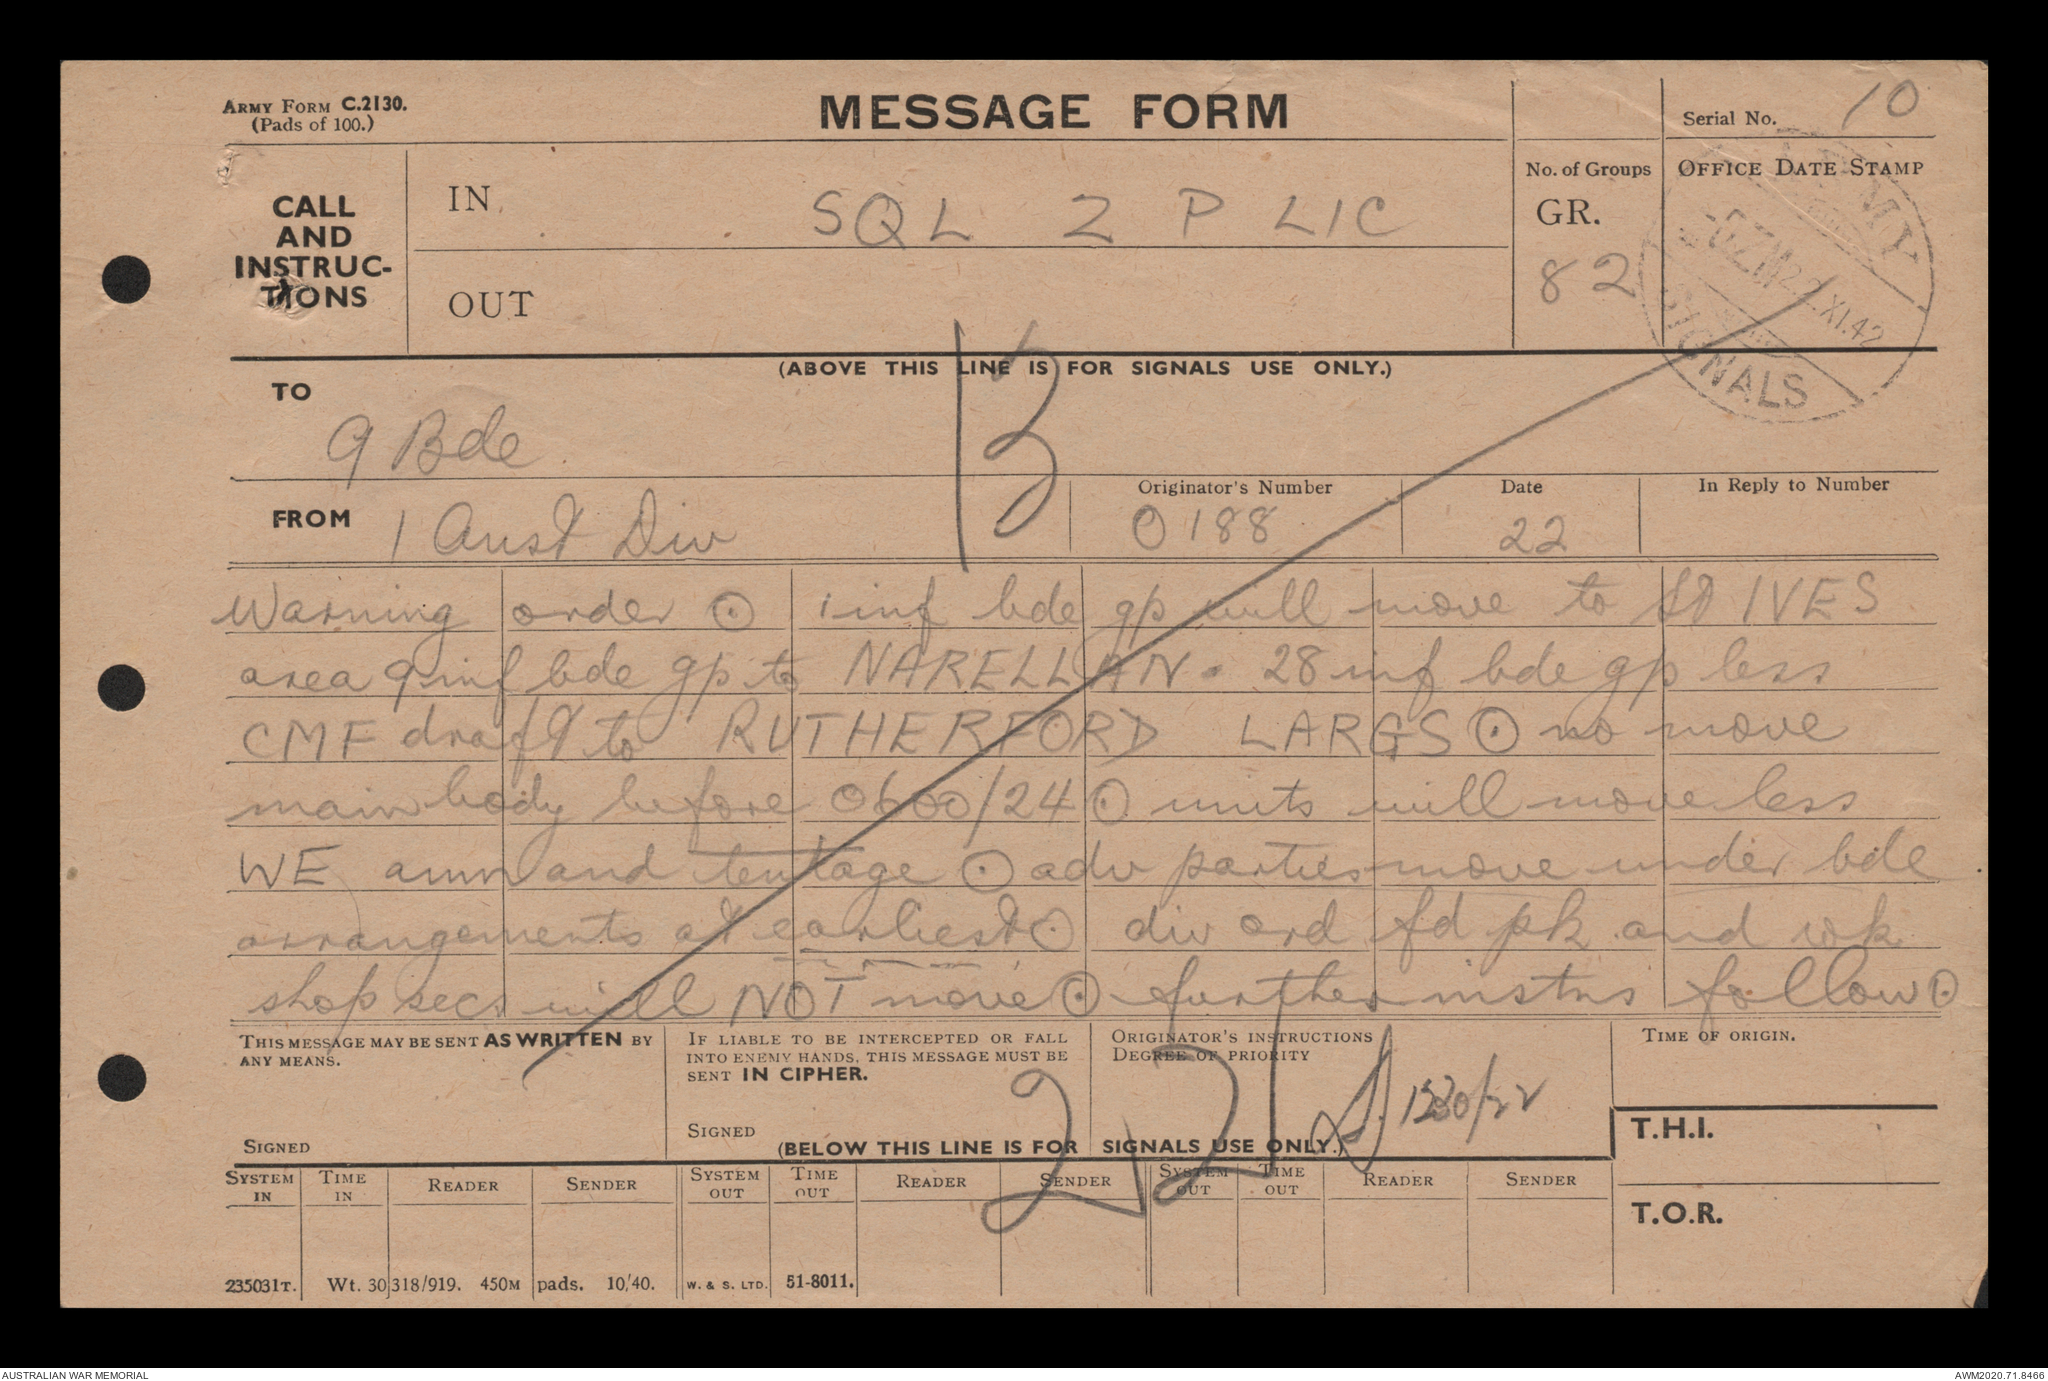 ARMY FORM C.2130.
(Pads of 100.)
MESSAGE FORM
Serial No. 10
CALL AND INSTRUC-TIONS
IN SQL Z P LIC
OUT
No. of Groups
GR.
82
OFFICE DATE STAMP
ARMY
22.XI.42
SIGNALS
(ABOVE THIS LINE IS FOR SIGNALS USE ONLY.)
TO
9 Bde
13
FROM 1 Aust Div
Originator's Number
0188
Date
22
In Reply to Number
Warning order ⊙ 1 inf bde gp will move to St IVES
area 9 inf bde gp to NARELLAN. 28 inf bde gp less
CMF draft to RUTHERFORD LARGS ⊙ no move
main body before 0600/24 ⊙ units will move less
WE amn and tentage ⊙ adv parties move under bde
arrangements at earliest ⊙ div ord fd pk and wk
shop secs will NOT move ⊙ further instns follow ⊙
THIS MESSAGE MAY BE SENT AS WRITTEN BY
ANY MEANS.
SIGNED
IF LIABLE TO BE INTERCEPTED OR FALL
INTO ENEMY HANDS, THIS MESSAGE MUST BE
SENT IN CIPHER.
SIGNED
ORIGINATOR'S INSTRUCTIONS
DEGREE OF PRIORITY
1230/22
221
TIME OF ORIGIN.
T.H.I.
T.O.R.
(BELOW THIS LINE IS FOR SIGNALS USE ONLY.)
SYSTEM IN TIME IN READER SENDER SYSTEM OUT TIME OUT READER SENDER SYSTEM OUT TIME OUT READER SENDER
235031T. Wt. 30318/919. 450M pads. 10/40. W. & S. LTD. 51-8011.
AUSTRALIAN WAR MEMORIAL
AWM2020.71.8466